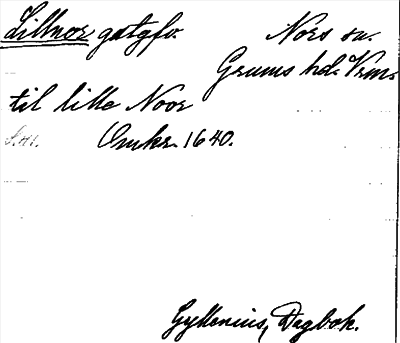 Lillnor gästgfv. Nors sn.
Grums hd. Vrml.
til lille Noor
S. 41.
Omkr. 1640.
Gyllenius, Dagbok.